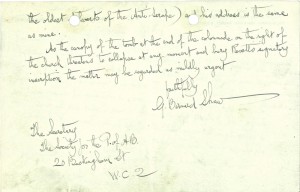 the oldest
) as his address is the same
as mine.
As the canopy of the tomb at the end of the colonnade on the right of
the church threatens to collapse at any moment and bury
inscription, the matter may be regarded as mildly urgent
faithfully
G. Bernard Shaw
The Secretary
The Society for the Prot. A.B.
20 Buckingham St
W.C.2